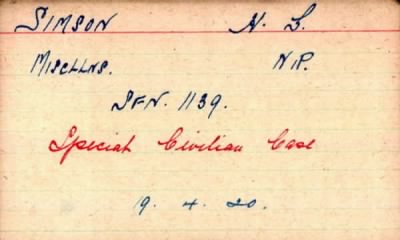 SIMSON H. L.
MISCLLNS. NIP.
IFN. 1139.
Special Civilian Case
9. 4. 20.